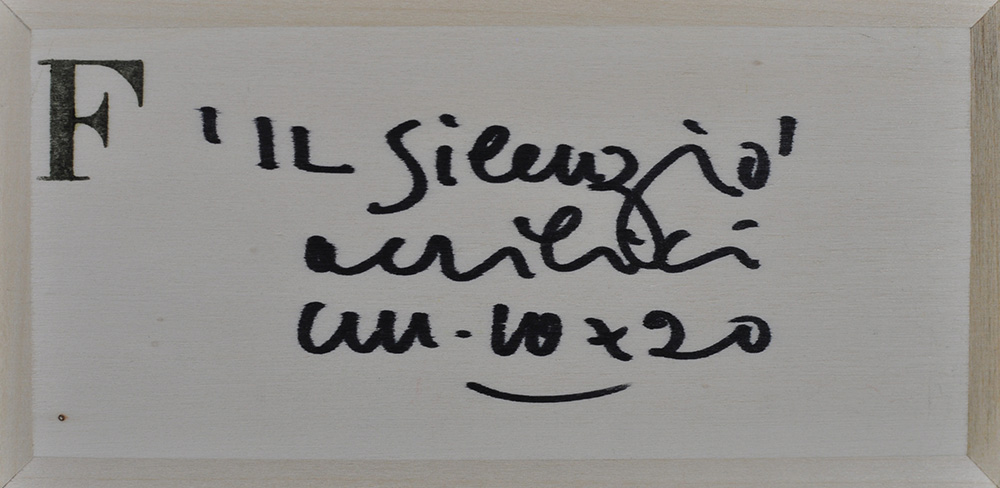 F
'IL Silenzio'
acrilici
cm. 10 x 20